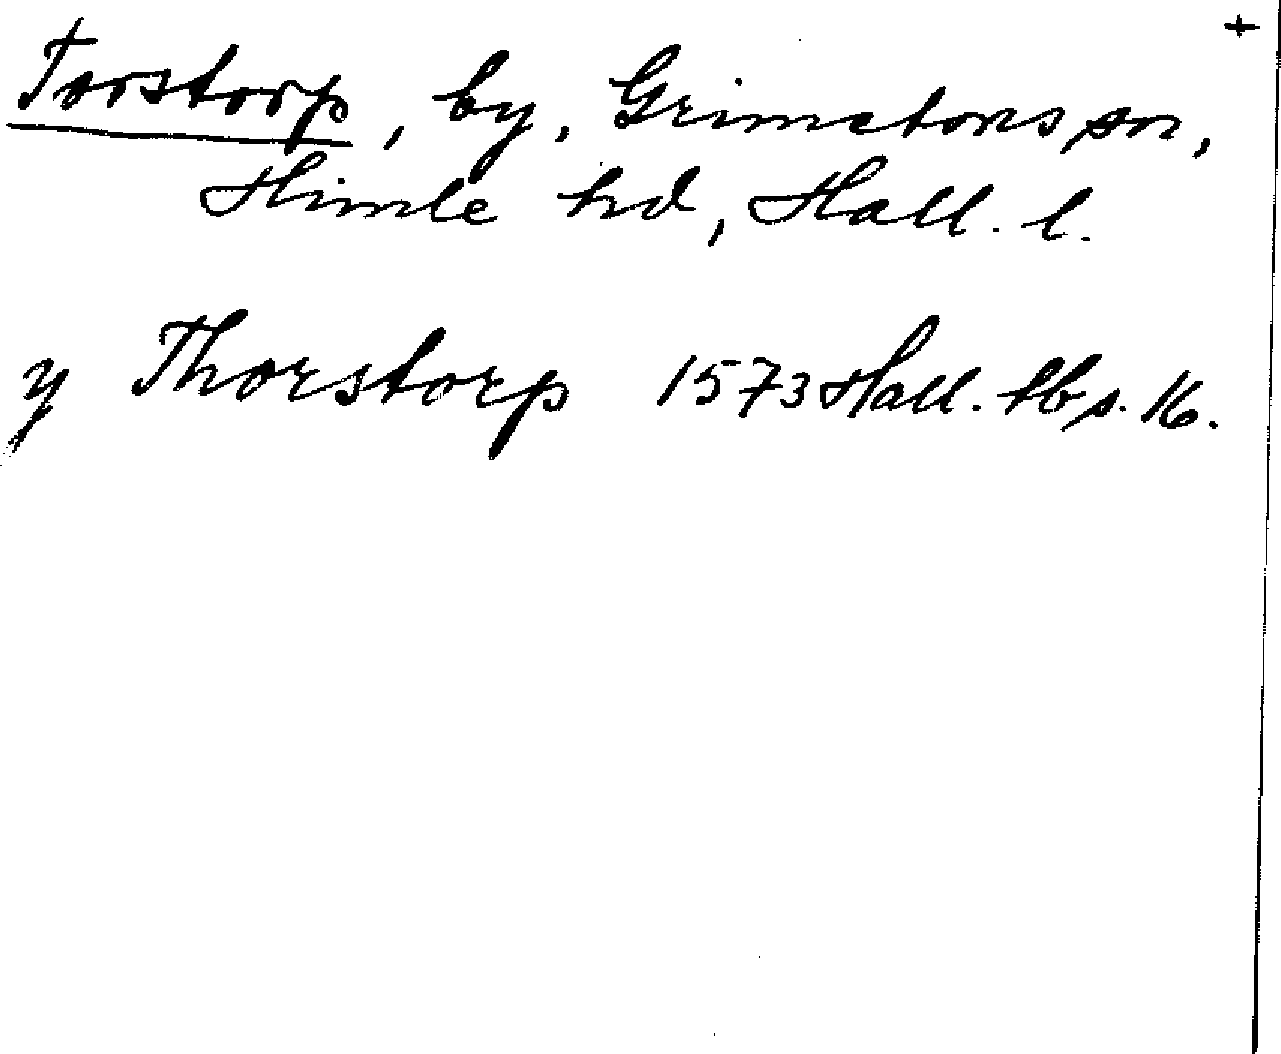 +
Torstorp, by, Grimetons sn,
Himle hd, Hall. l.
y Thorstorp 1573 Hall. tb s. 16.